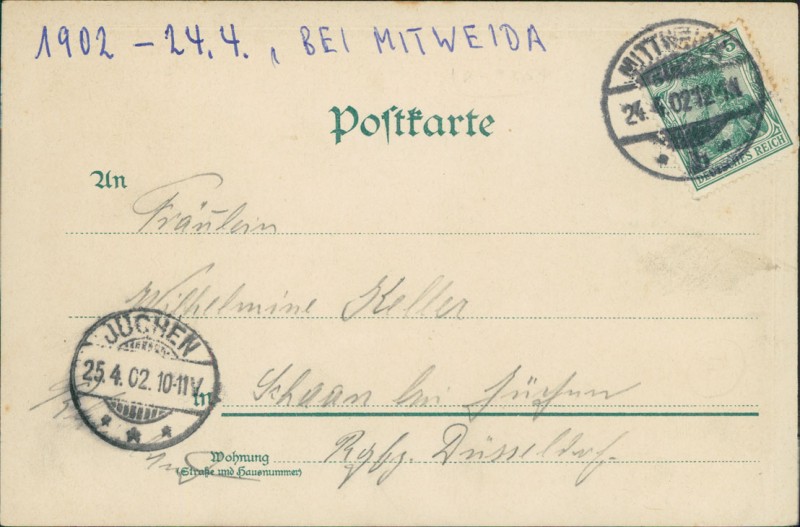 1902 – 24.4., BEI MITWEIDA
MITTWEIDA
24.4.02 12
b
5
DEUTSCHES REICH
Postkarte
An
Fräulein
Wilhelmine Keller
JÜCHEN
25.4.02. 10-11V
in Schaan bei Jüchen
Rgbz. Düsseldorf.
Wohnung
(Straße und Hausnummer)